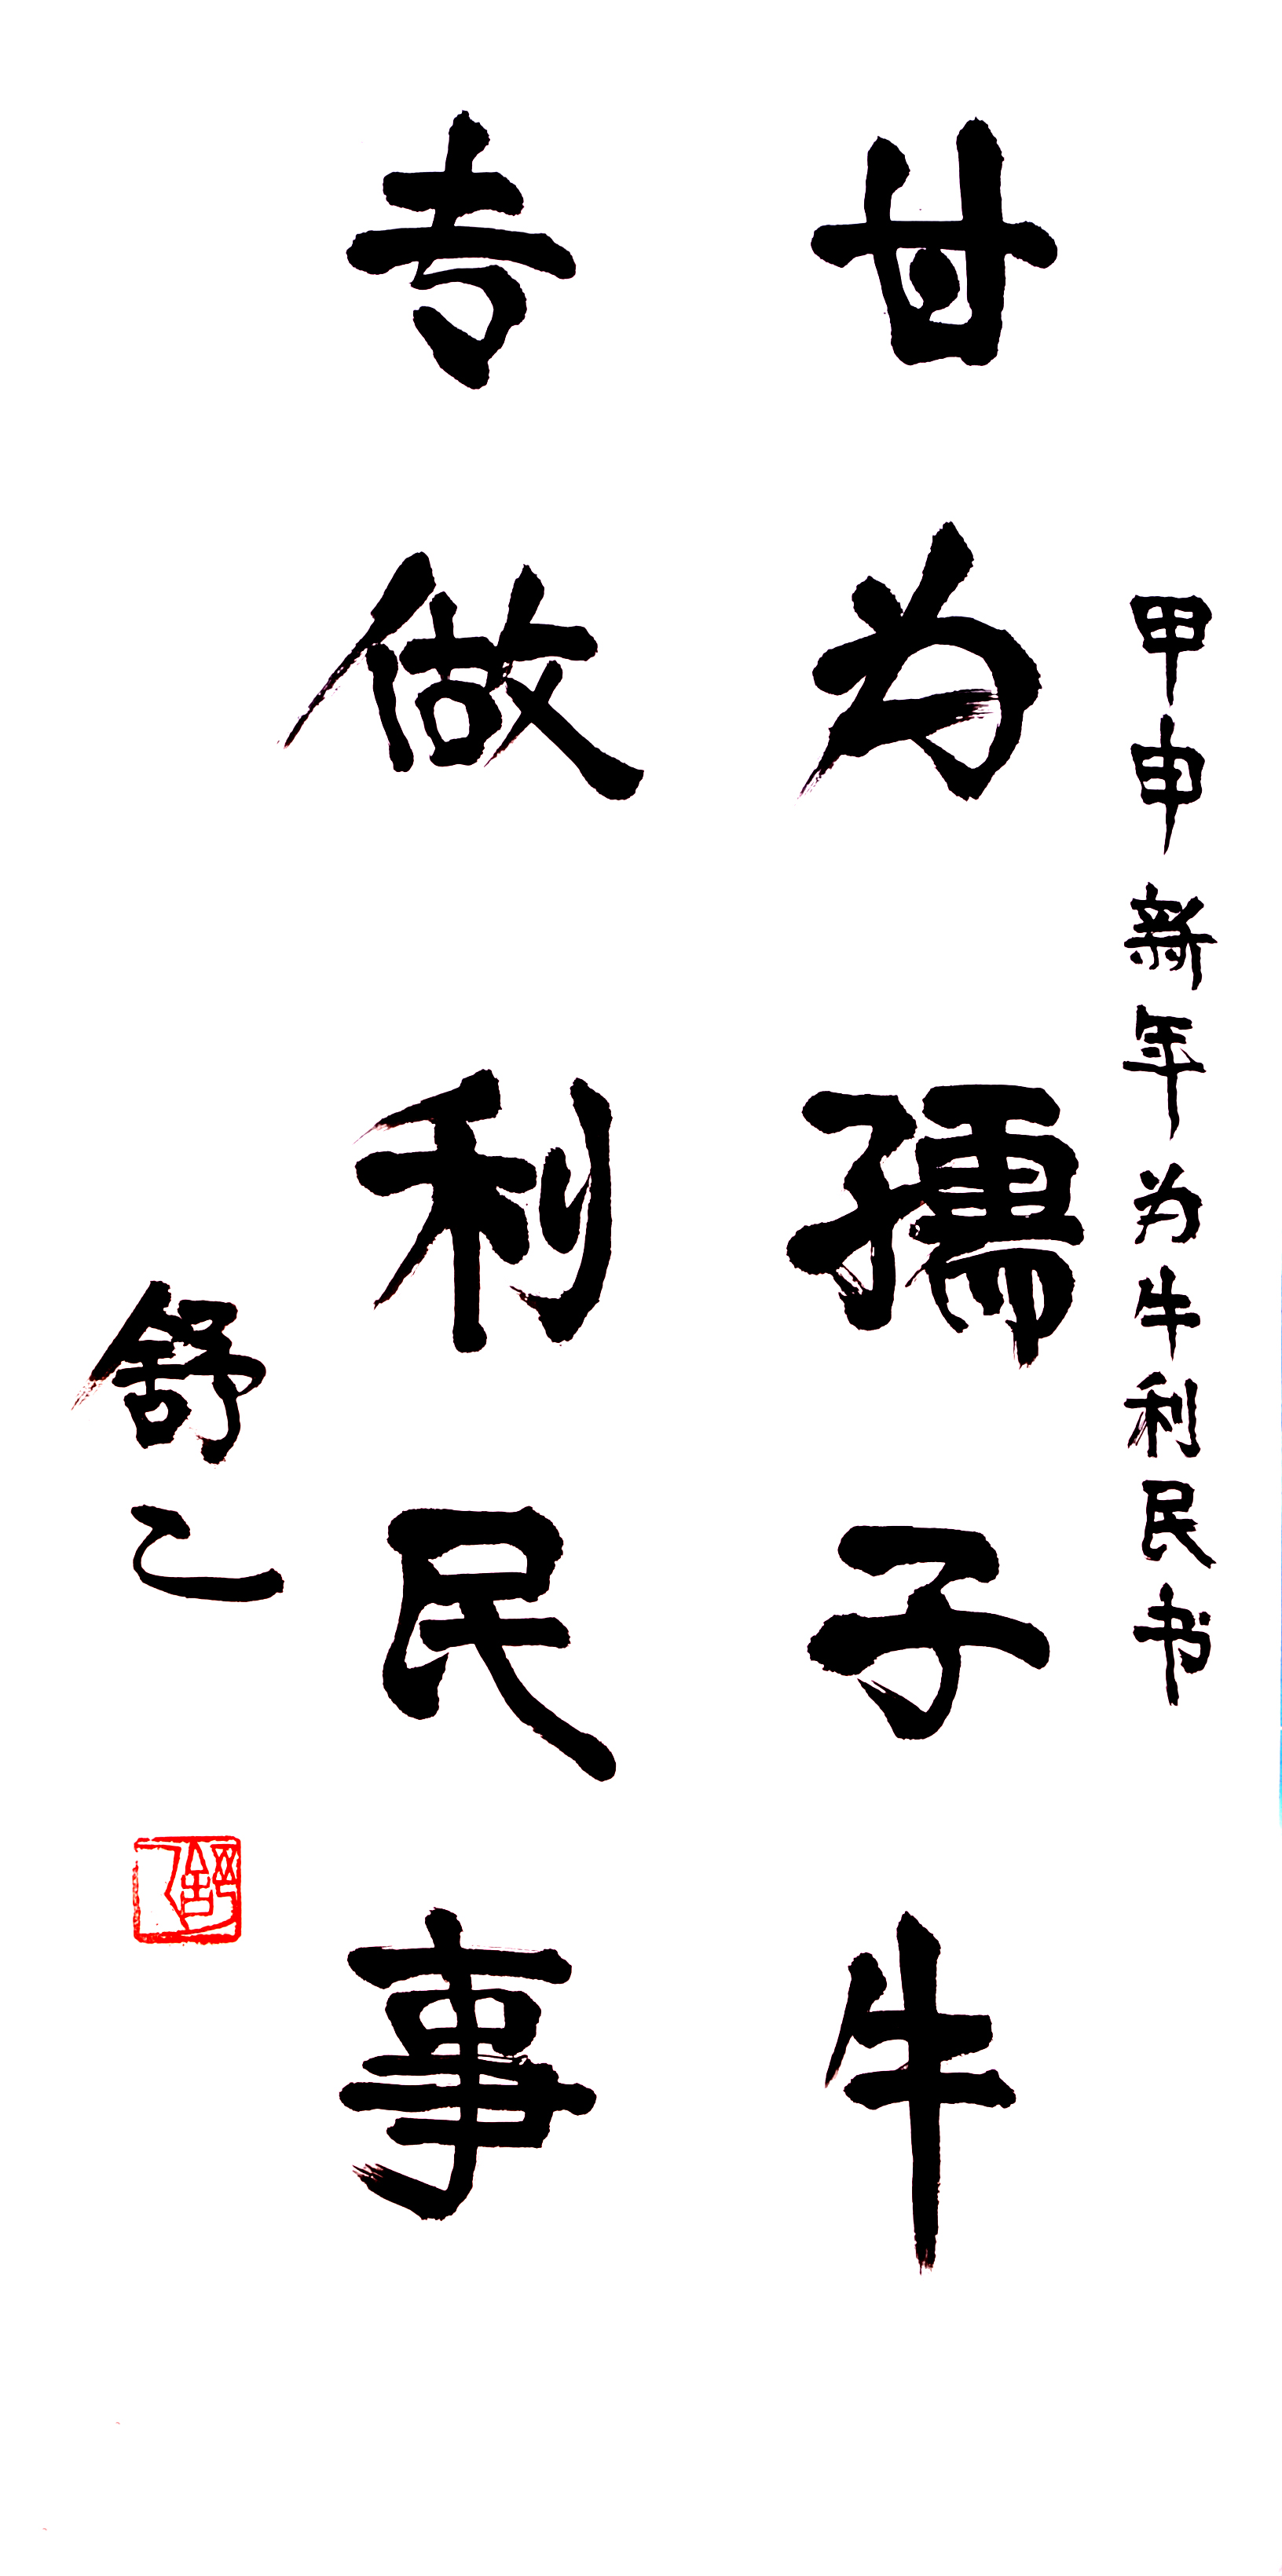 甲申新年为牛利民书
甘为孺子牛
专做利民事
舒乙
舒乙